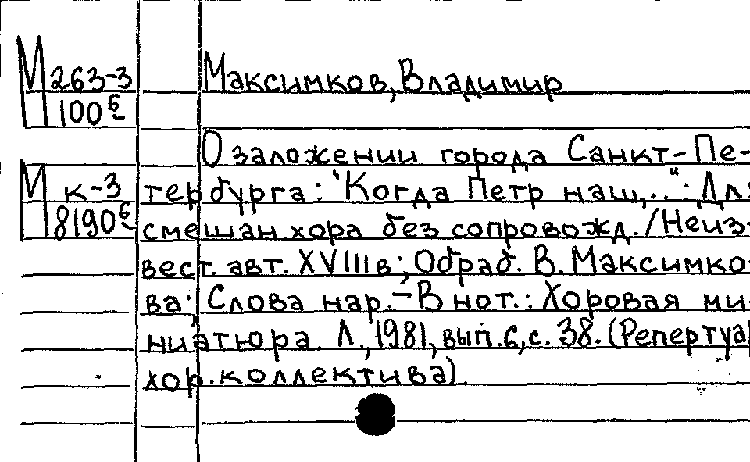 М 263-3 Максимков, Владимир
100 б
О заложении города Санкт-Пе-
М к-3 тербурга: "Когда Петр наш,..": Для
8190 б смешан хора без сопровожд./Неиз-
вест. авт. XVIII в; Обраб. В. Максимко-
ва; Слова нар.-В нот.: Хоровая ми-
ниатюра Л., 1981, вып.6, с. 38. (Репертуар
хор. коллектива).